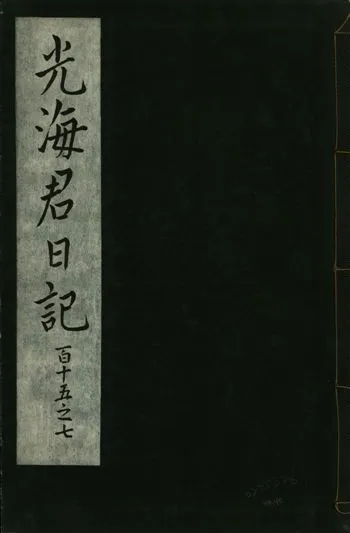 光海君日記
百十五之七